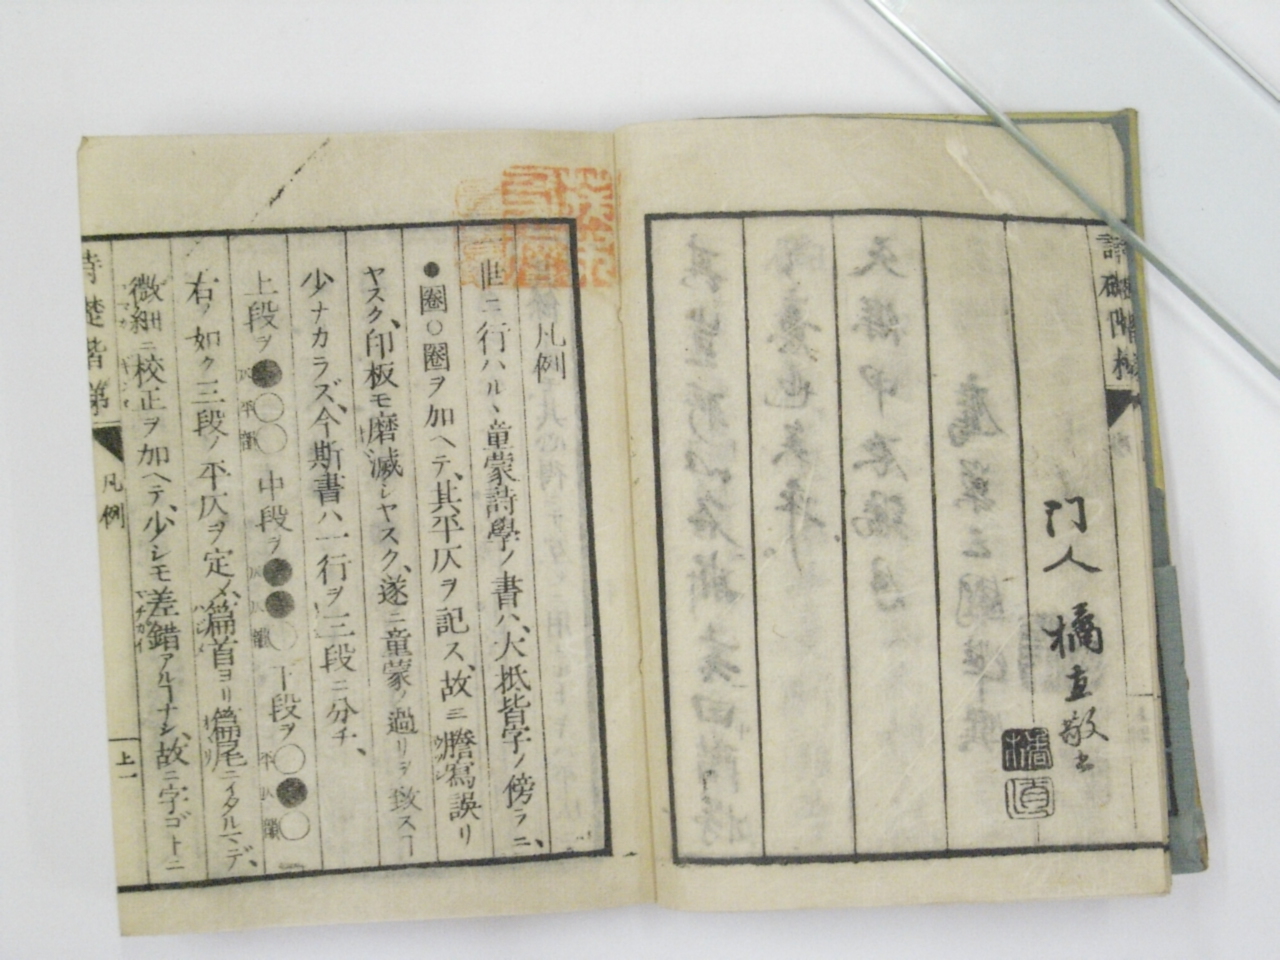 門人 橘直敬書
凡例
世ニ行ハル、童蒙詩學ノ書ハ、大抵皆字ノ傍ラニ、
●圈○圈ヲ加ヘテ、其平仄ヲ記ス、故ニ謄寫誤リ
ヤスク、印板モ磨滅シヤスク、遂ニ童蒙ノ過リヲ致スヿ
少ナカラズ、今斯書ハ一行ヲ三段ニ分チ、
上段ヲ●○○ 中段ヲ●●○ 下段ヲ○●○
右ノ如ク三段ノ平仄ヲ定メ、篇首ヨリ篇尾ニイタルマデ、
微細ニ校正ヲ加ヘテ、少シモ差錯アルヿナシ、故ニ字ゴトニ
階梯
凡例
上一